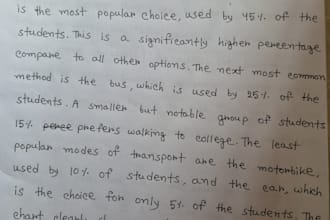 is the most popular choice, used by 45% of the
students. This is a significantly higher percentage
compare to all other options. The next most common
method is the bus, which is used by 25% of the
students. A smaller but notable group of students
15% prefers walking to college. The least
popular modes of transport are the motorbike,
used by 10% of students, and the car, which
is the choice for only 5% of the students. The
chart clearly